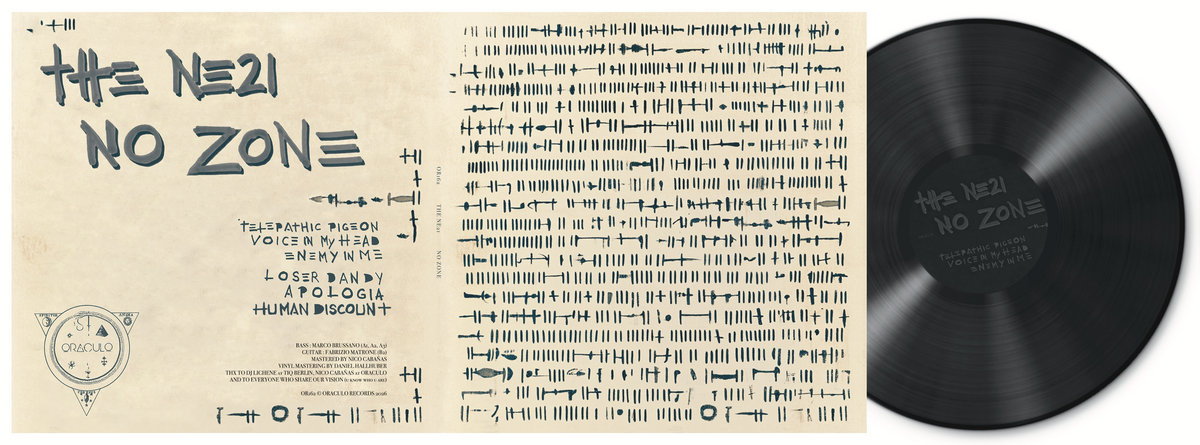 THE NE21
NO ZONE
TELEPATHIC PIGEON
VOICE IN MY HEAD
ENEMY IN ME
LOSER DANDY
APOLOGIA
HUMAN DISCOUNT
ORACULO
BASS : MARCO BRUSSANO (A1, A2, A3)
GUITAR : FABRIZIO MATRONE (B2)
MASTERED BY NICO CABAÑAS
VINYL MASTERING BY DANIEL HALLHUBER
THX TO DJ LICHENE AT TIQ BERLIN, NICO CABAÑAS AT ORACULO
AND TO EVERYONE WHO SHARE OUR VISION (U KNOW WHO U ARE)
OR162 © ORACULO RECORDS 2026
OR162 THE NE21 NO ZONE
THE NE21
NO ZONE
TELEPATHIC PIGEON
VOICE IN MY HEAD
ENEMY IN ME